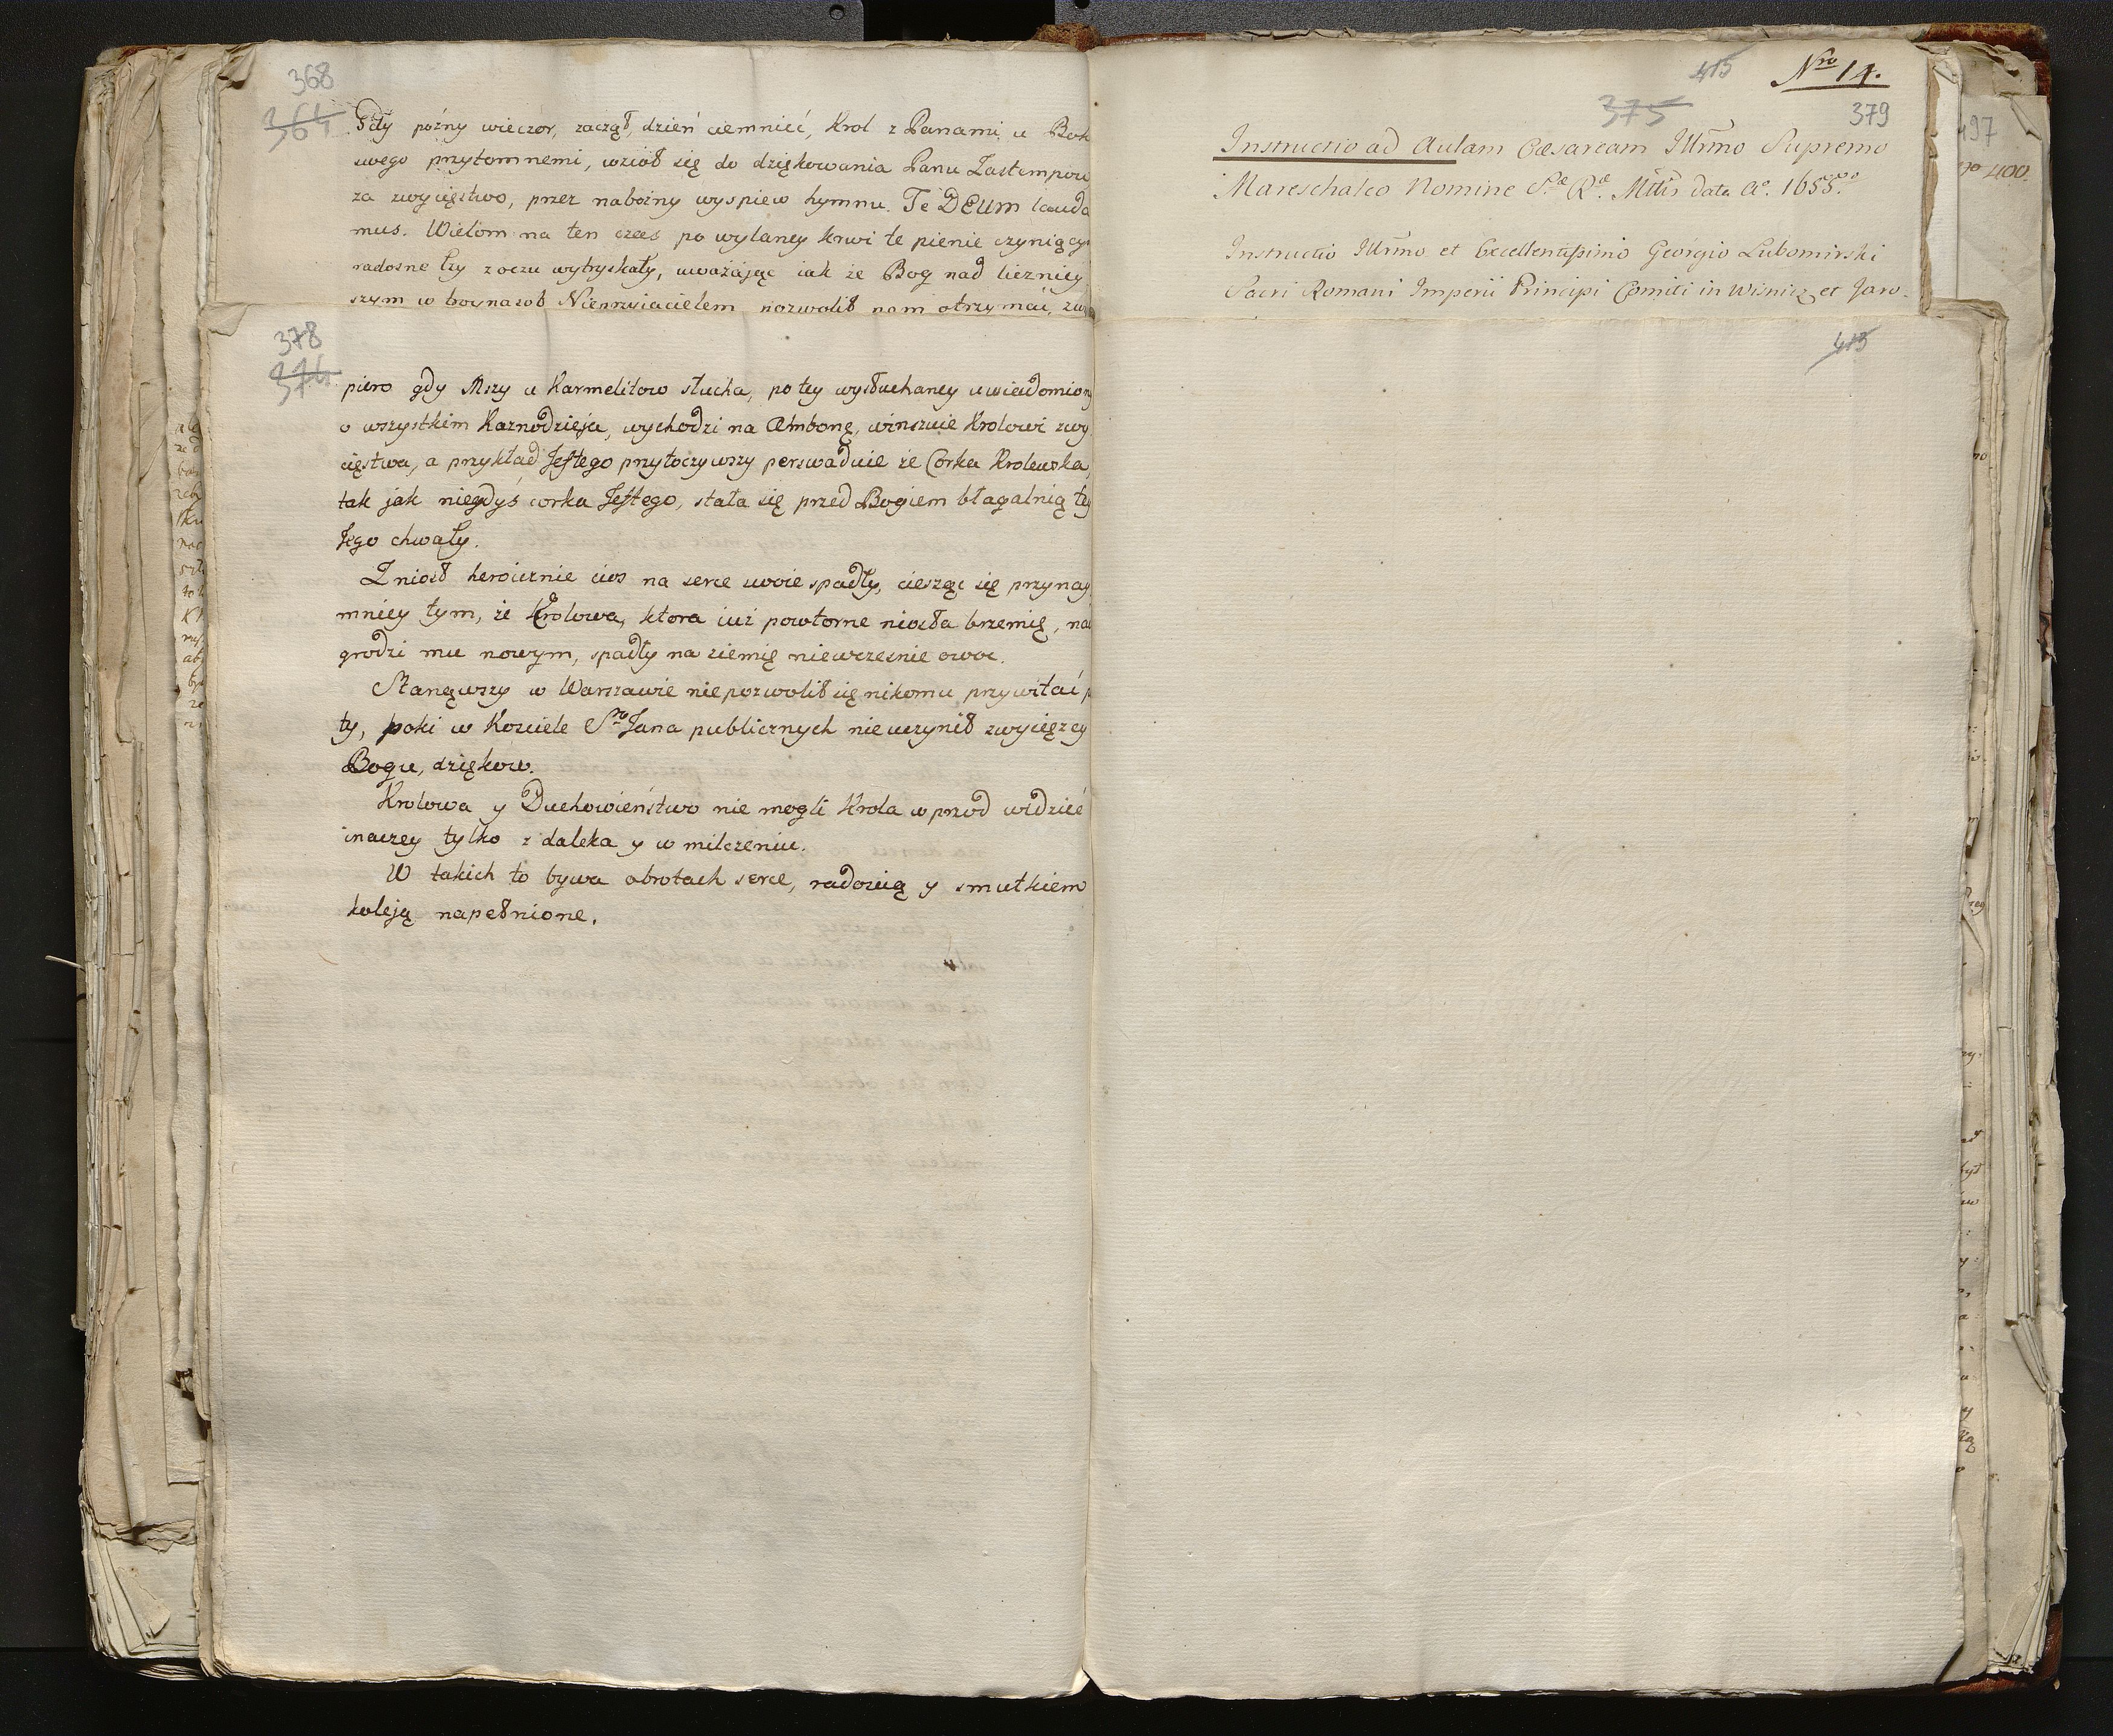 368
364
Gdy poźny wieczor, zaczął, dzień ciemnieć, Krol z Panami u Bok
swego przytomnemi, wziół się do dziękowania Panu Zastempow
za zwycięstwo, przez nabożny wyspiew hymnu. Te DEUM lauda
mus. Wielom na ten czas po wylaney krwi te pienie czyniący
radosne łzy z oczu wytryskały, uważając iak że Bog nad liczniey
szym w troynasob Nieprzyiacielem pozwolił nam otrzymać, zwy
378
374
piero gdy Mszy u Karmelitow słucha, po tey wysłuchaney uwiadomiony
o wszystkim Kaznodzieja, wychodzi na Ambonę, winszuie Krolowi zwy
cięstwa, a przykład Jeftego przytoczywszy perswaduie że Corka Krolewska,
tak jak niegdyś corka Jeftego, stała się przed Bogiem błagalnią tey
Jego chwały.
Zniosł heroicznie cios na serce swoie spadły, ciesząc się przynay
mniey tym, że Krolowa, ktora iuż powtorne niosła brzemię, na
grodzi mu nowym, spadły na ziemię niewczesnie owoc.
Stanąwszy w Warszawie nie pozwolił się nikomu przywitać p
ty, poki w Kościele Sgo Jana publicznych nie uczynił zwycięzcy
Bogu, dziękow.
Krolowa y Duchowieństwo nie mogli Krola w przod widzieć
inaczey tylko z daleka y w milczeniu.
W takich to bywa obrotach serce, radością y smutkiem
koleją napełnione.
415
Nro 14.
375
379
Instructio ad Aulam Cæsaream Illrmo Supremo
Mareschalco Nomine Sæ Ræ Mttis data Ao. 1655.
Instructio Illrmo et Excellentissimo Georgio Lubomirski
Sacri Romani Imperii Principi Comiti in Wisnicz et Jaro-
415
497
400.